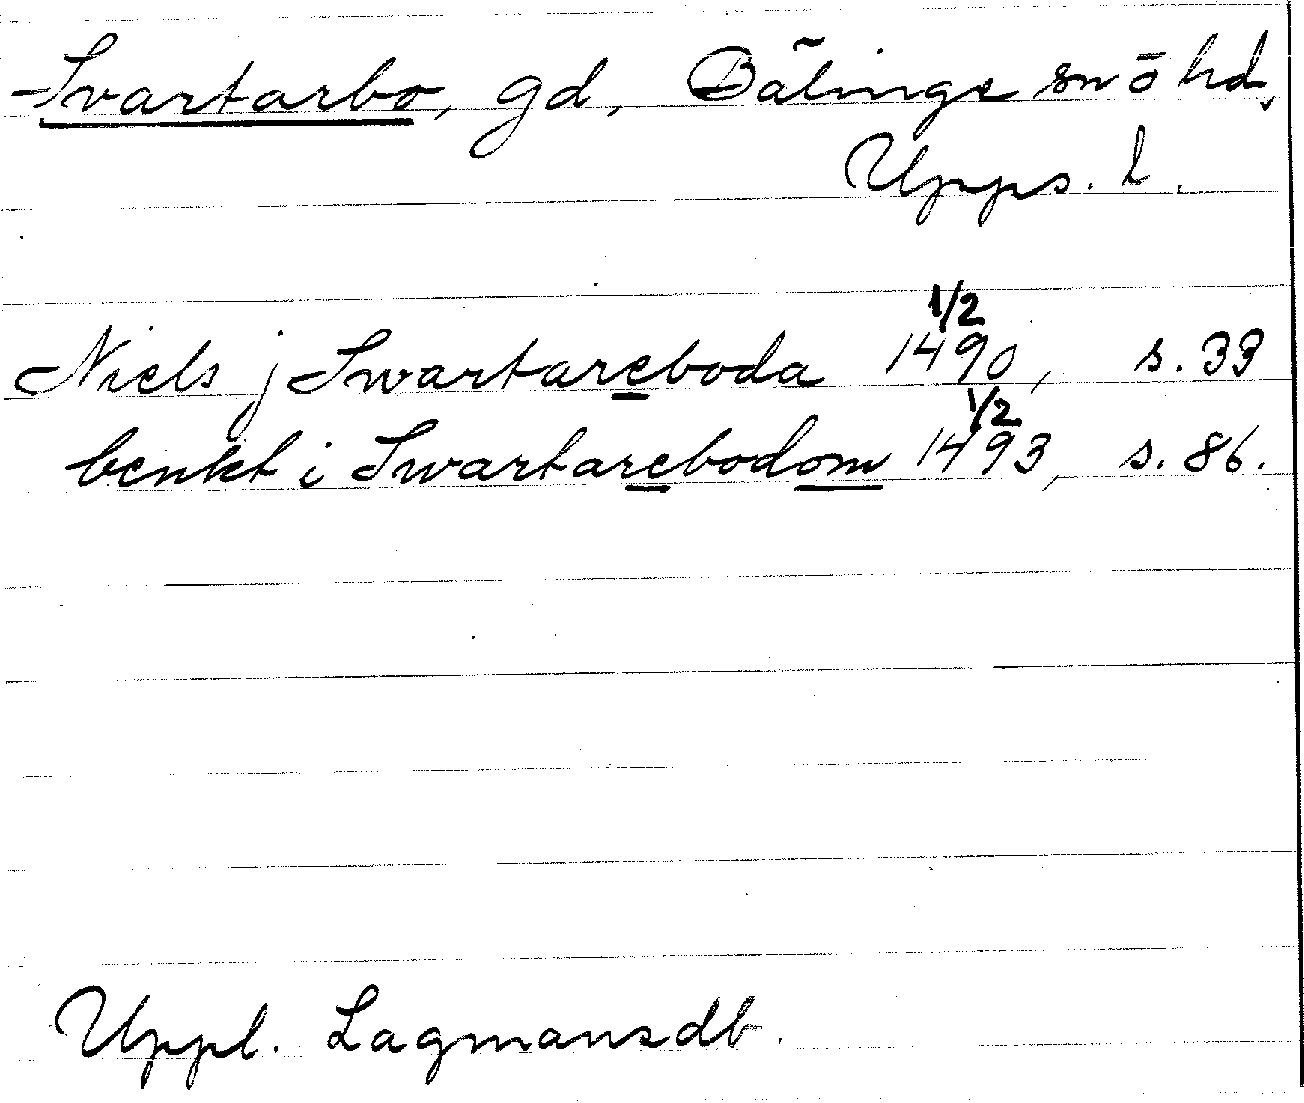 Svartarbo, gd, Bälinge sn ō hd,
Upps. l.
Niels j Swartareboda 1/2 1490, s. 33
benkt i Swartarebodom 1/2 1493, s. 86.
Uppl. Lagmansdb.